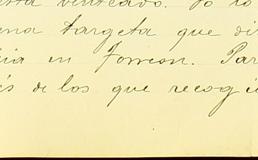 venteado. Yo
una targeta que di
in Torreon. Par
s de los que recogi